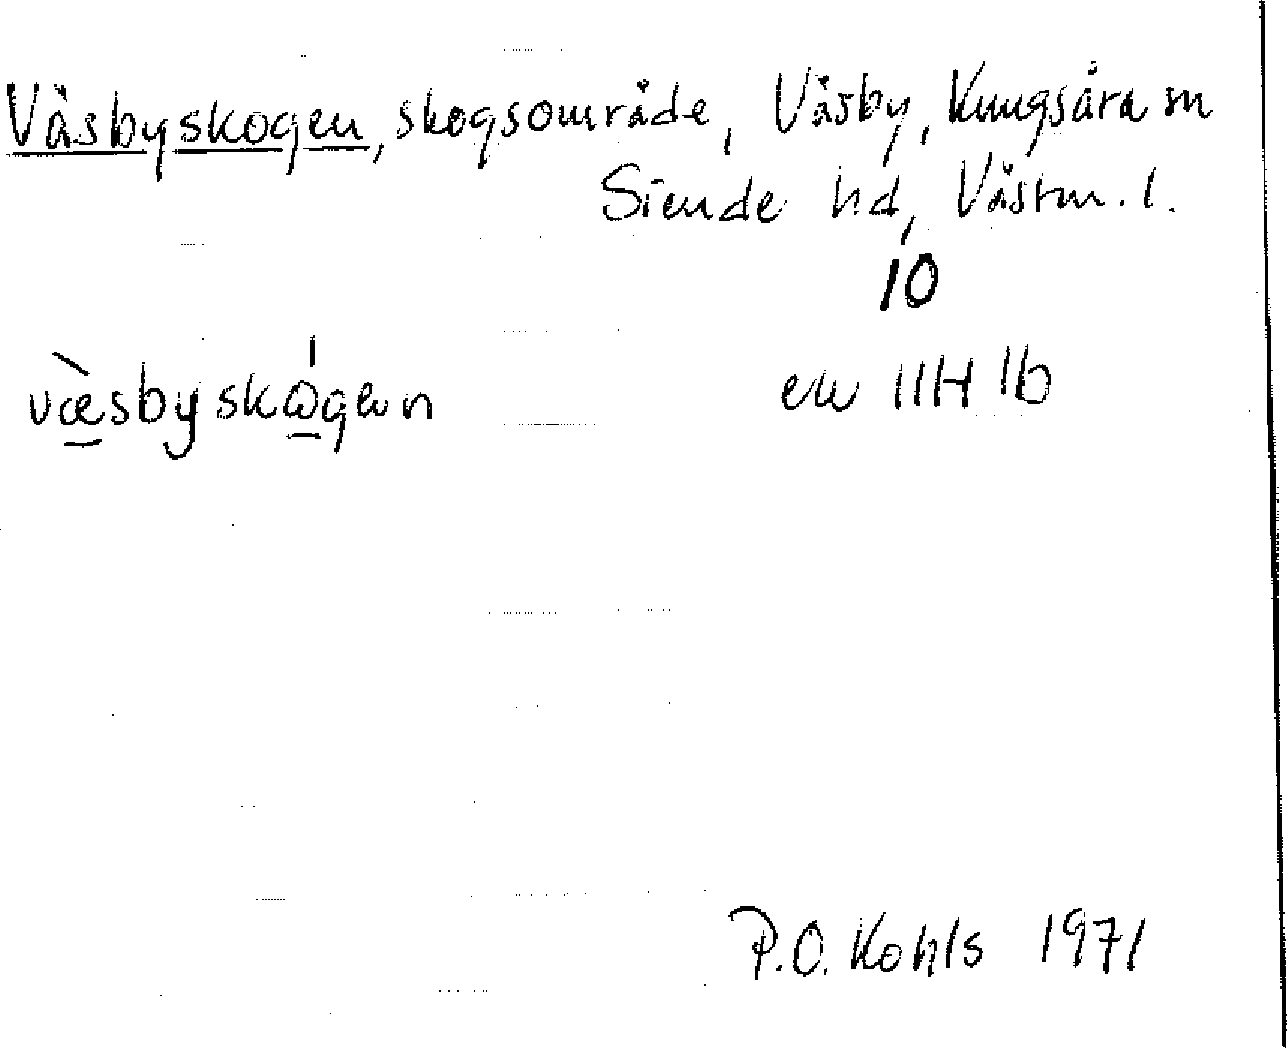 Väsbyskogen, skogsområde, Väsby, Kungsåra sn
Siende hd, Västm. l.
10
væsbyskωgen
ek 11H 1b
P.O. Kohls 1971